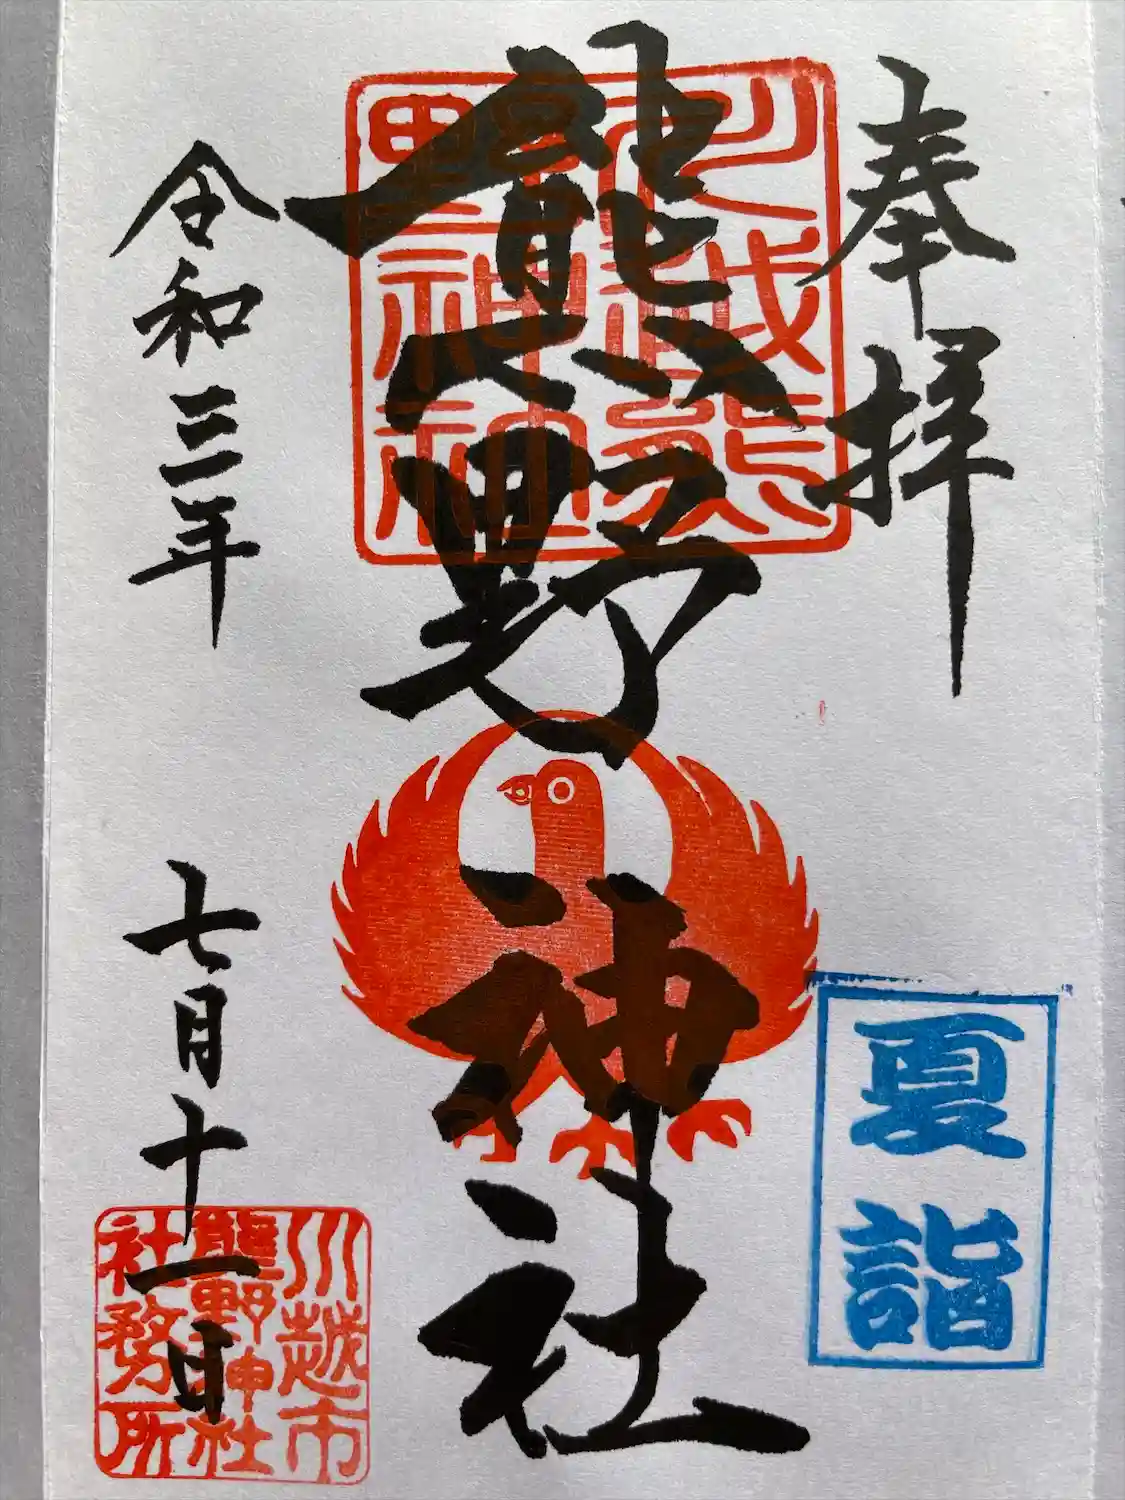 奉拝
夏詣
川越熊
野神社
熊野神社
令和三年
七月十一日
川越市
熊野神社
社務所